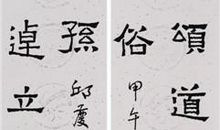 頌道
俗
甲午
孫
邱
逴立